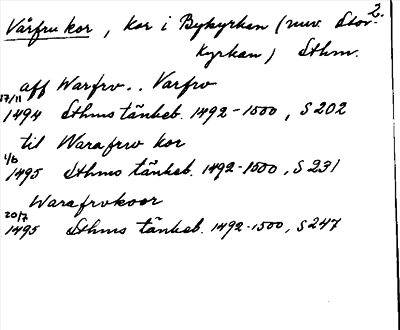 2.
Vårfrukor, kor i Bykyrkan (nuv. Stor-
kyrkan) Sthm.
aff Warfrv.. Varfrv
17/11
1494 Sthms tänkeb. 1492-1500, S 202
til Warafrw kor
1/6
1495 Sthms tänkeb. 1492-1500, S 231
Warafrvkoor
20/7
1495 Sthms tänkeb. 1492-1500, S 247